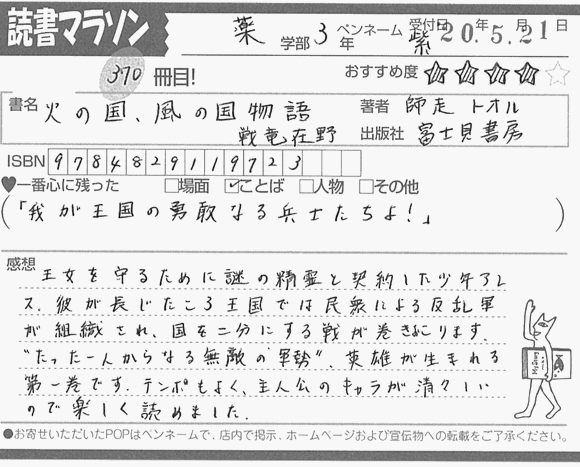 読書マラソン
薬 学部 3年 ペンネーム 紫 受付日 20年 5月 21日
370 冊目! おすすめ度 ★★★★☆
書名 火の国、風の国物語 戦竜在野
著者 師走トオル
出版社 富士見書房
ISBN 9784829119723
♥一番心に残った □場面 ☑ことば □人物 □その他
(「我が王国の勇敢なる兵士たちよ!」)
感想 王女を守るために謎の精霊と契約した少年アレ
ス. 彼が長じたころ王国では民衆による反乱軍
が組織され、国を二分にする戦が巻きおこります.
"たった一人からなる無敵の軍勢". 英雄が生まれる
第一巻です. テンポもよく、主人公のキャラが清々しい
ので楽しく読めました.
●お寄せいただいたPOPはペンネームで、店内で掲示、ホームページおよび宣伝物への転載をご了承ください。